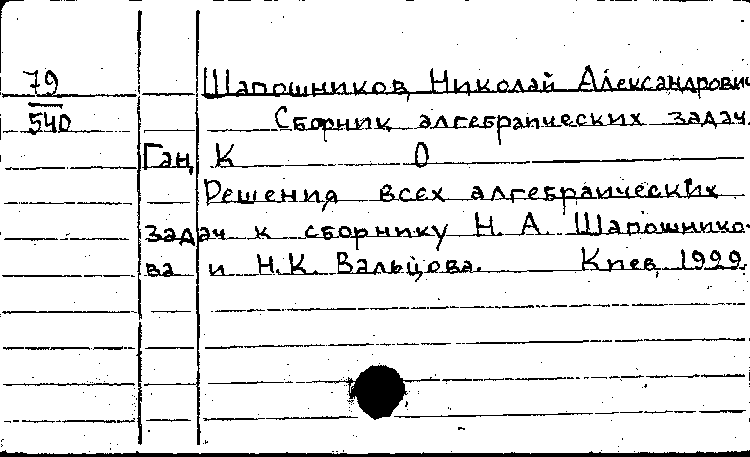 79
540
Шапошников, Николай Александрович
Сборник алгебраических задач.
Ган, К О
Решения всех алгебраических
задач к сборнику Н. А. Шапошнико-
ва и Н.К. Вальцова. Киев, 1929.